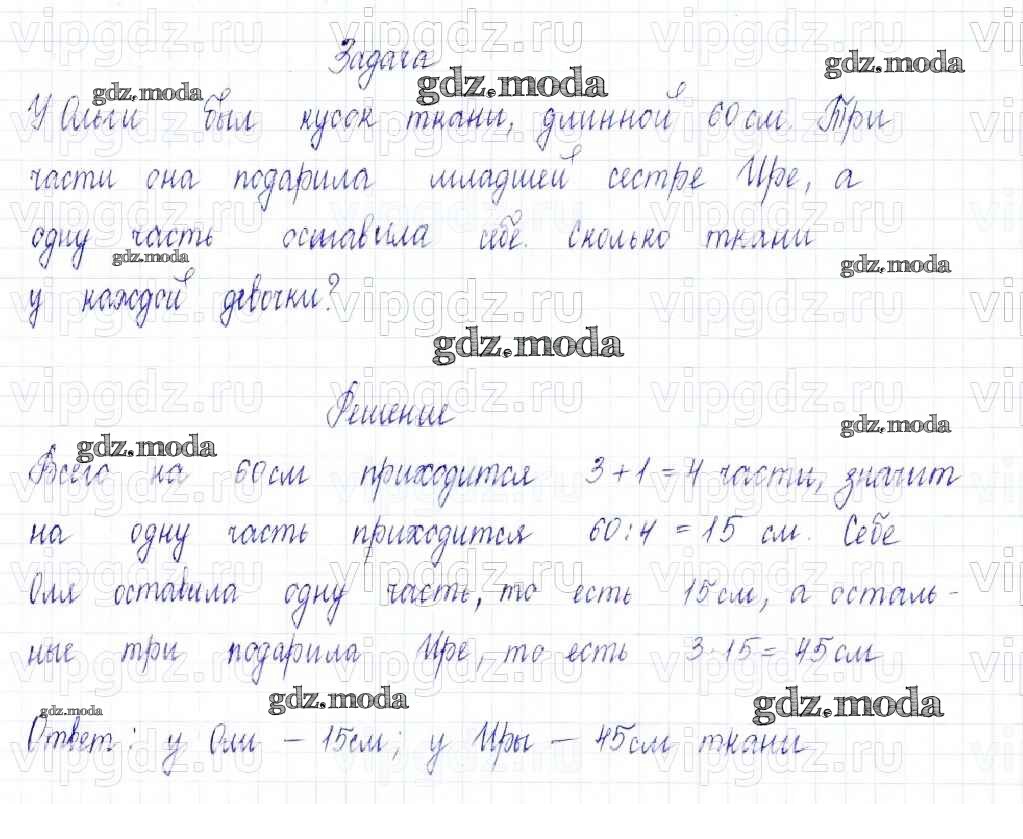 Задача
У Ольги был кусок ткани, длинной 60 см. Три
части она подарила младшей сестре Ире, а
одну часть оставила себе. Сколько ткани
у каждой девочки?
Решение
Всего на 60 см приходится 3 + 1 = 4 части, значит
на одну часть приходится 60 : 4 = 15 см. Себе
Оля оставила одну часть, то есть 15 см, а осталь-
ные три подарила Ире, то есть 3 · 15 = 45 см
Ответ: у Оли – 15 см; у Иры – 45 см ткани